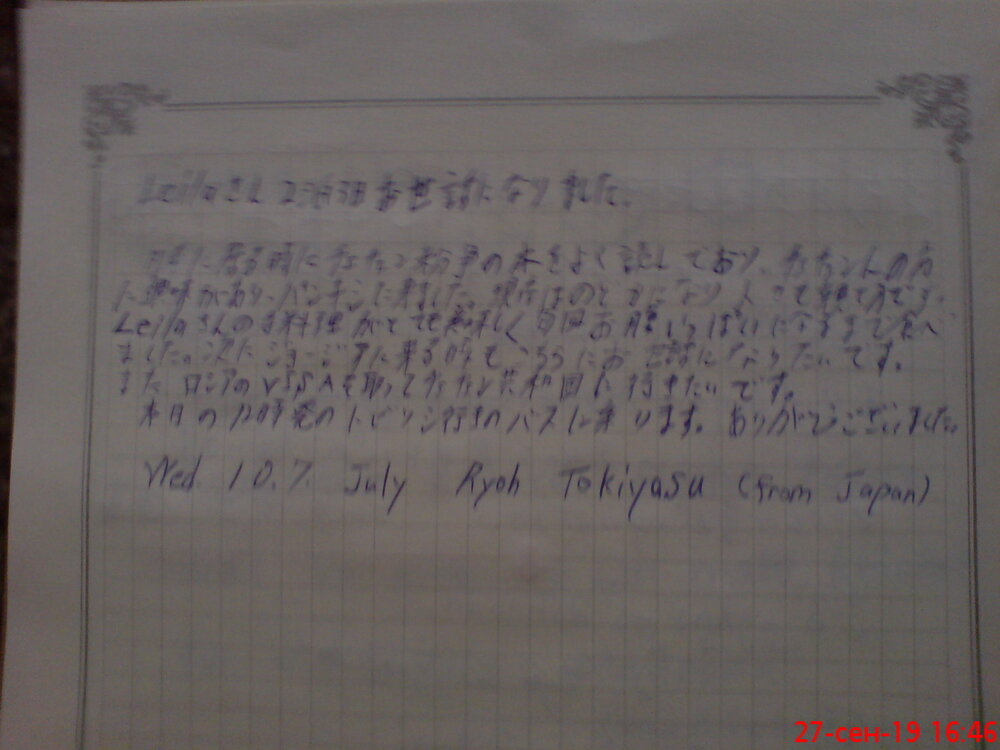 Leilaさん 2泊3日お世話になりました。
時にチェチェン紛争の本をよく読んでおり、
に興味があり、パンキシに来ました。
Leilaさんの手料理がとても美味しく毎回お腹いっぱいになるまで食べ
ました。次にジョージアに来る時もこちらにお世話になりたいです。
また ロシアのVISAを取ってチェチェン共和国に行きたいです。
本日の12時発のトビリシ行きのバスに乗ります。ありがとうございました。
Wed. 10.7. July Ryoh Tokiyasu (from Japan)
27-сен-19 16:46